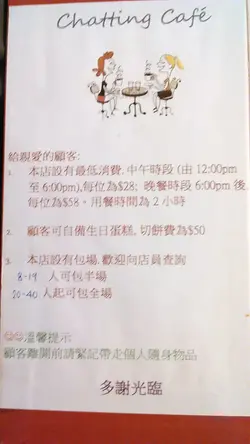 Chatting Café
給親愛的顧客:
1. 本店設有最低消費, 中午時段 (由 12:00pm
至 6:00pm),每位為$28; 晚餐時段 6:00pm 後,
每位為$58。用餐時間為 2 小時
2. 顧客可自備生日蛋糕, 切餅費為$50
3. 本店設有包場, 歡迎向店員查詢
8-19 人可包半場
20-40 人起可包全場
溫馨提示
顧客離開前請緊記帶走個人隨身物品
多謝光臨